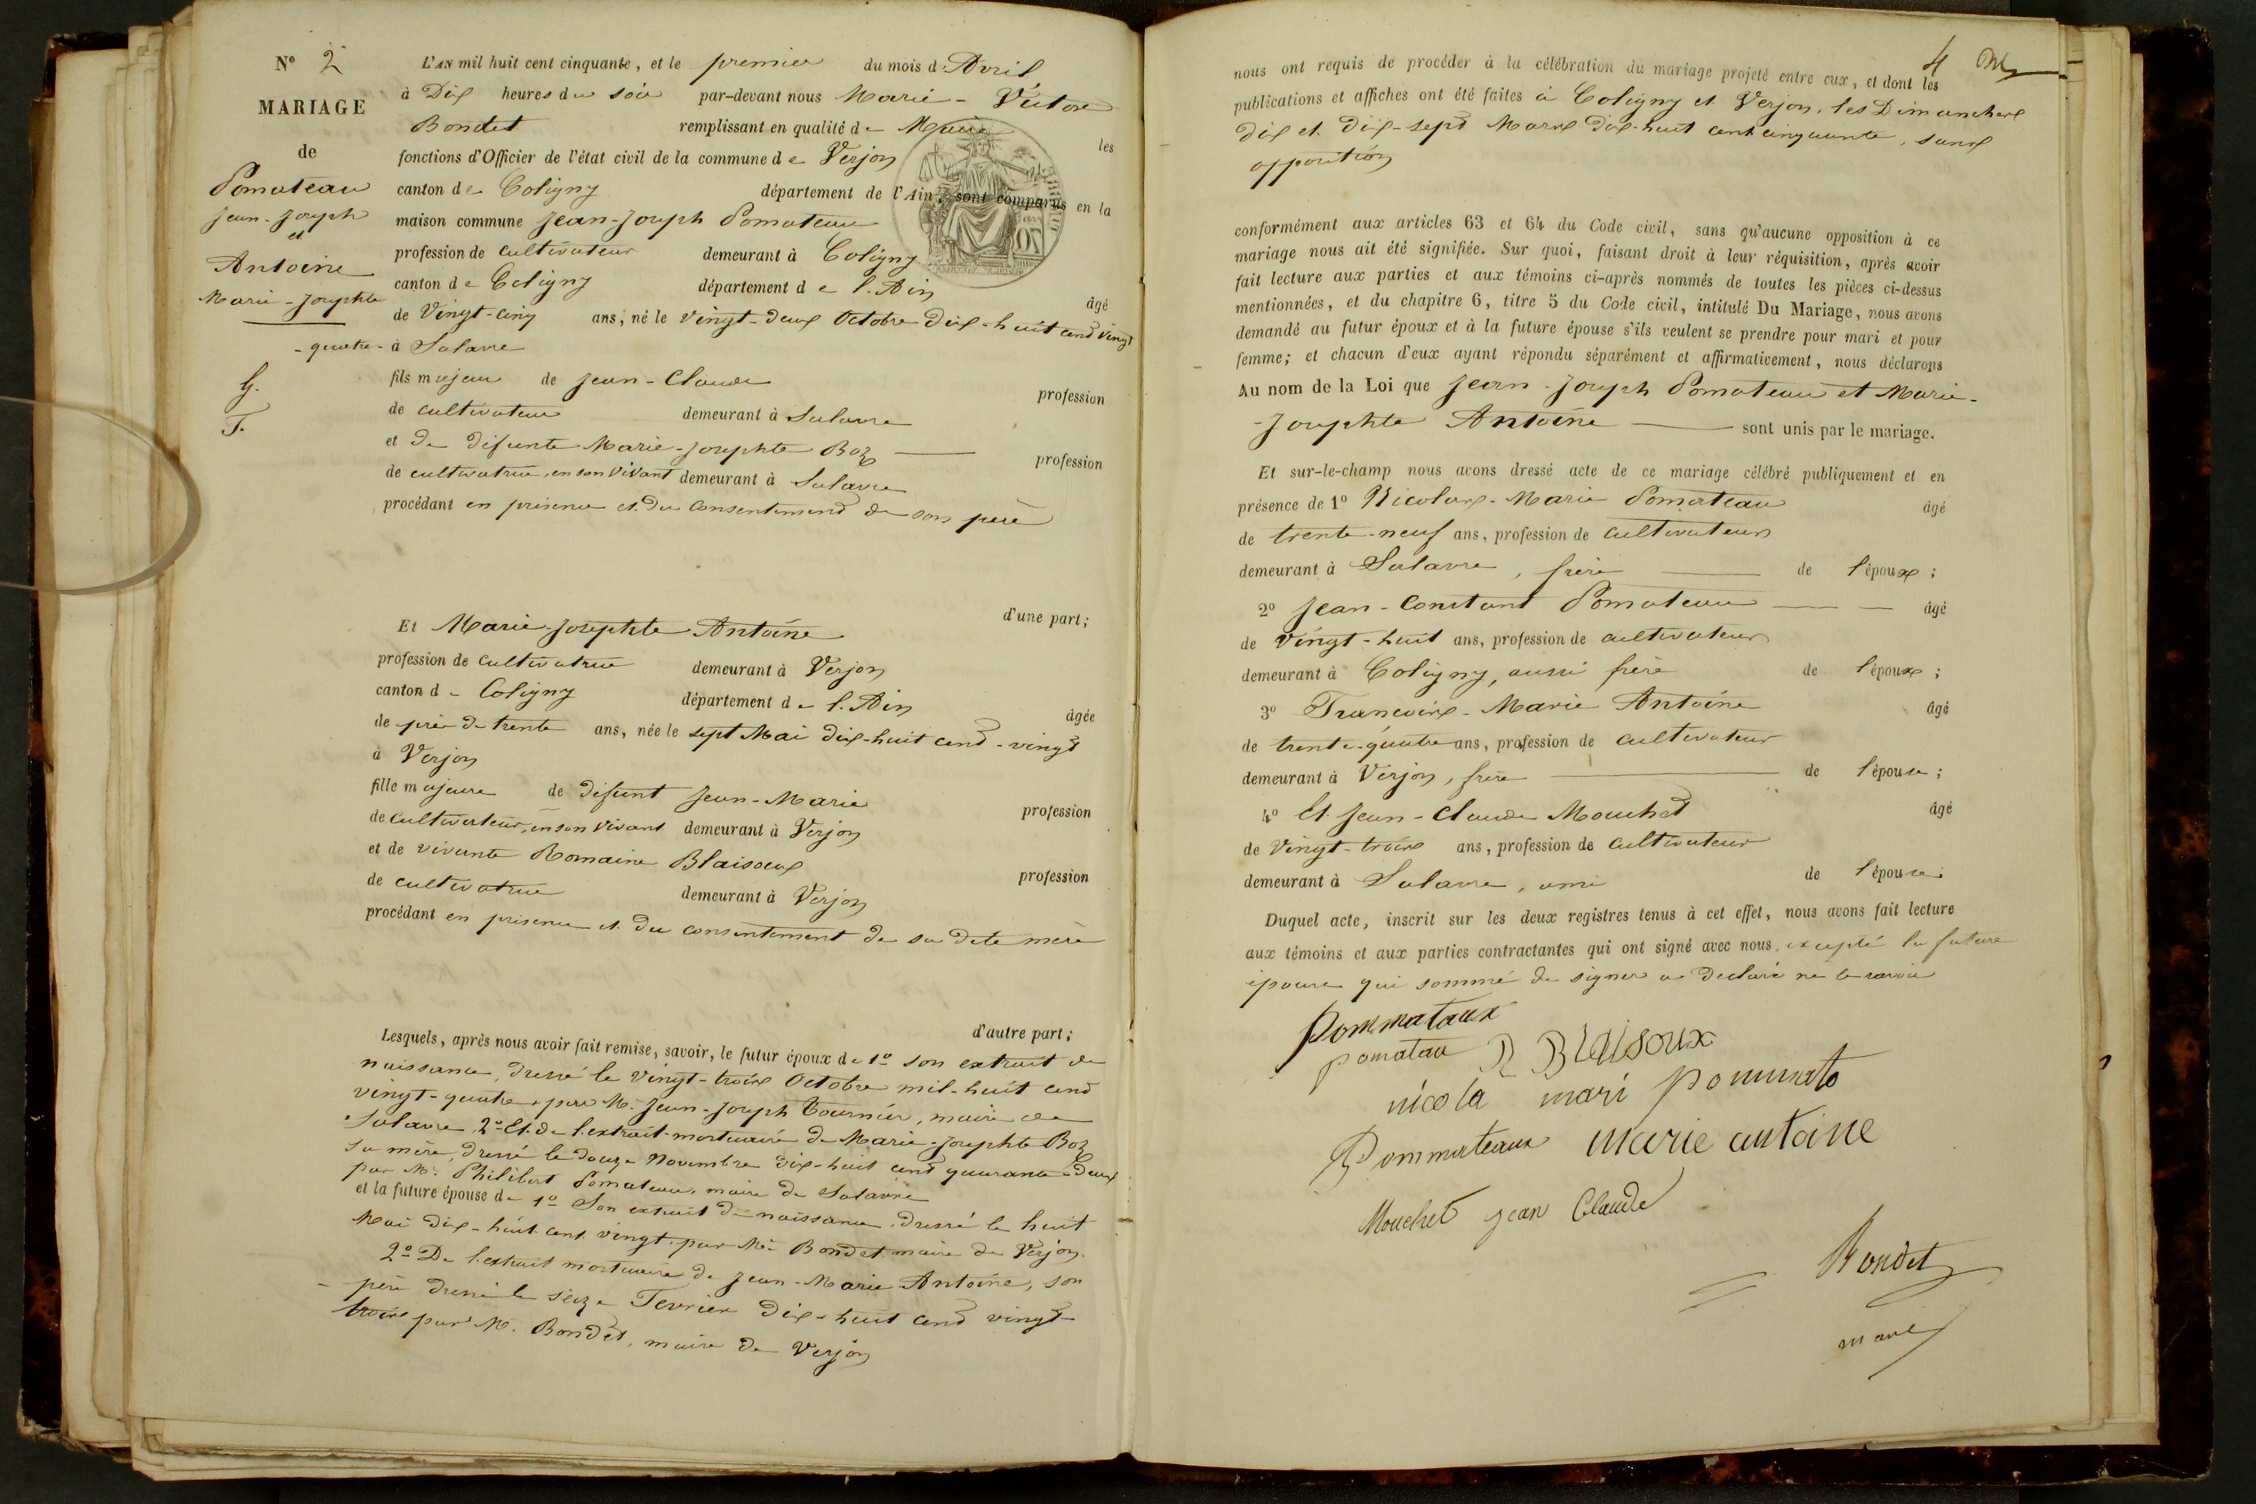 N° 2
MARIAGE
de
Pomateau
Jean-Joseph
et
Antoine
Marie-Josephte
G.
T.
L'AN mil huit cent cinquante, et le premier du mois d'Avril
à Dix heures du soir par-devant nous Marie-Victor
Bondet remplissant en qualité de Maire les
fonctions d'Officier de l'état civil de la commune de Verjon
canton de Coligny département de l'Ain, sont comparus en la
maison commune Jean-Joseph Pomateau
profession de cultivateur demeurant à Coligny
canton de Coligny département de l'Ain âgé
de Vingt-cinq ans, né le vingt-deux Octobre dix-huit cent vingt
-quatre- à Salavre
fils majeur de Jean-Claude profession
de cultivateur demeurant à Salavre
et de défunte Marie-Josephte Boz profession
de cultivatrice, en son vivant demeurant à Salavre
procédant en présence et du consentement de son père
d'une part;
Et Marie-Josephte Antoine
profession de cultivatrice demeurant à Verjon
canton de Coligny département de l'Ain âgée
de près de trente ans, née le sept Mai dix-huit cent-vingt
à Verjon
fille majeure de défunt Jean-Marie profession
de cultivateur, en son vivant demeurant à Verjon
et de vivante Romaine Blaisoux profession
de cultivatrice demeurant à Verjon
procédant en présence et du consentement de sa dite mère
d'autre part;
Lesquels, après nous avoir fait remise, savoir, le futur époux de 1° son extrait de
naissance, dressé le vingt-trois Octobre mil-huit cent
vingt-quatre, par M. Jean-Joseph Tournier, maire de
Salavre 2° Et de l'extrait mortuaire de Marie-Josephte Boz
sa mère, dressé le douze Novembre dix-huit cent quarante-deux
par M. Philibert Pomateau, maire de Salavre
et la future épouse de 1° Son extrait de naissance dressé le huit
Mai dix-huit cent vingt par Mr Bondet maire de Verjon
2° De l'extrait mortuaire de Jean-Marie Antoine, son
père dressé le seize Fevrier dix-huit cent vingt-
trois par M. Bondet, maire de Verjon
4
nous ont requis de procéder à la célébration du mariage projeté entre eux, et dont les
publications et affiches ont été faites à Coligny et Verjon, les Dimanches
dix et dix-sept Mars dix-huit cent cinquante, sans
opposition
conformément aux articles 63 et 64 du Code civil, sans qu'aucune opposition à ce
mariage nous ait été signifiée. Sur quoi, faisant droit à leur réquisition, après avoir
fait lecture aux parties et aux témoins ci-après nommés de toutes les pièces ci-dessus
mentionnées, et du chapitre 6, titre 5 du Code civil, intitulé Du Mariage, nous avons
demandé au futur époux et à la future épouse s'ils veulent se prendre pour mari et pour
femme; et chacun d'eux ayant répondu séparément et affirmativement, nous déclarons
Au nom de la Loi que Jean-Joseph Pomateau et Marie-
-Josephte Antoine sont unis par le mariage.
Et sur-le-champ nous avons dressé acte de ce mariage célébré publiquement et en
présence de 1° Nicolas-Marie Pomateau âgé
de trente-neuf ans, profession de cultivateur
demeurant à Salavre, frère de l'époux;
2° Jean-Constant Pomateau âgé
de vingt-huit ans, profession de cultivateur
demeurant à Coligny, aussi frère de l'époux;
3° Francois-Marie Antoine âgé
de trente-quatre ans, profession de cultivateur
demeurant à Verjon, frère de l'épouse;
4° Et Jean-Claude Mouchet âgé
de Vingt-trois ans, profession de cultivateur
demeurant à Salavre, ami de l'épouse
Duquel acte, inscrit sur les deux registres tenus à cet effet, nous avons fait lecture
aux témoins et aux parties contractantes qui ont signé avec nous, excepté la future
épouse qui sommé de signer a declaré ne le savoir
Pommataux
pomatau R Blaisoux
nicola mari pommato
Pommateaux marie antoine
Mouchet jean Claude
Bondet
maire